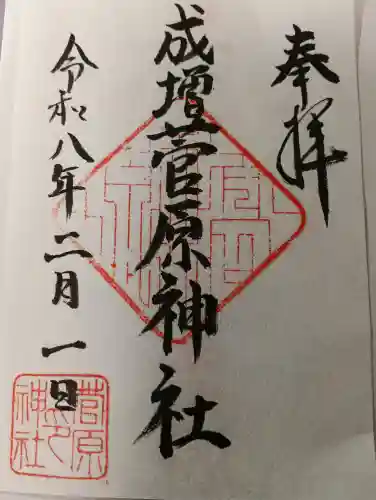 奉拝
成増菅原神社
令和八年二月一日
菅原
神社